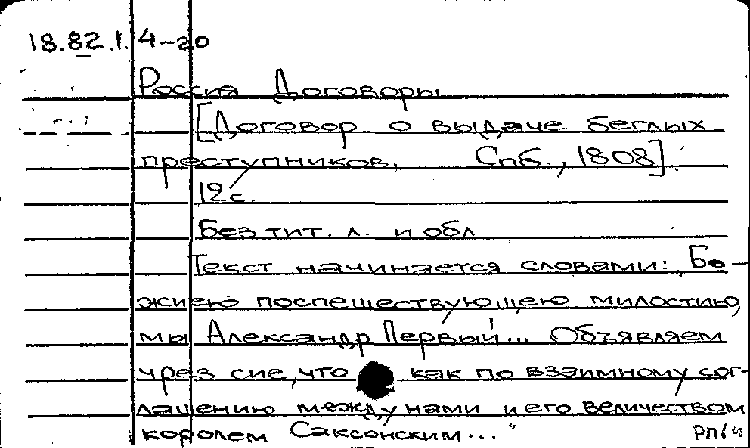 18.82.1.4-20
Россия Договоры
[Договор о выдаче беглых
преступников. Спб., 1808]
12с.
Без тит. л. и обл
Текст начинается словами: „Бо-
жиею поспешествующею милостию,
мы Александр Первый... Объявляем
чрез сие, что как по взаимному сог-
лашению между нами и его величеством
королем Саксонским..."